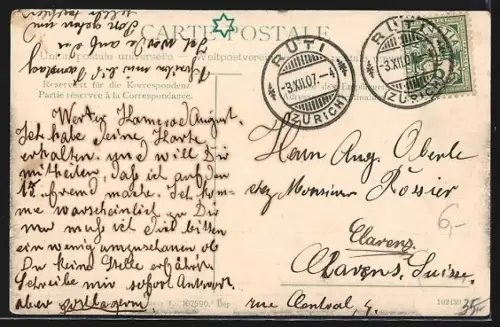 CARTE POSTALE
Union postale universelle — Weltpostverein
Reservirt für die Korrespondenz
Partie réservée à la Correspondance
RÜTI
-3.XII.07.-4
(ZÜRICH)
RÜTI
-3.XII.0
(ZÜRICH)
Werter Kamerad August.
Ich habe deine Karte
erhalten und will Dir
mitteilen, daß ich auf den
15. fremd mache. Ich kom-
me warscheinlich zu Dir
nur muß ich Dich bitten
ein wenig umzuschauen ob
Du keine Stelle erfährst.
Schreibe mir sofort Antwort
aber postlagernd
Ich werde auf den
Herrn Aug. Oberle
chez Monsieur Rossier
Clarens
Clarens, Suisse.
rue Central, 4.
6,-
35,-